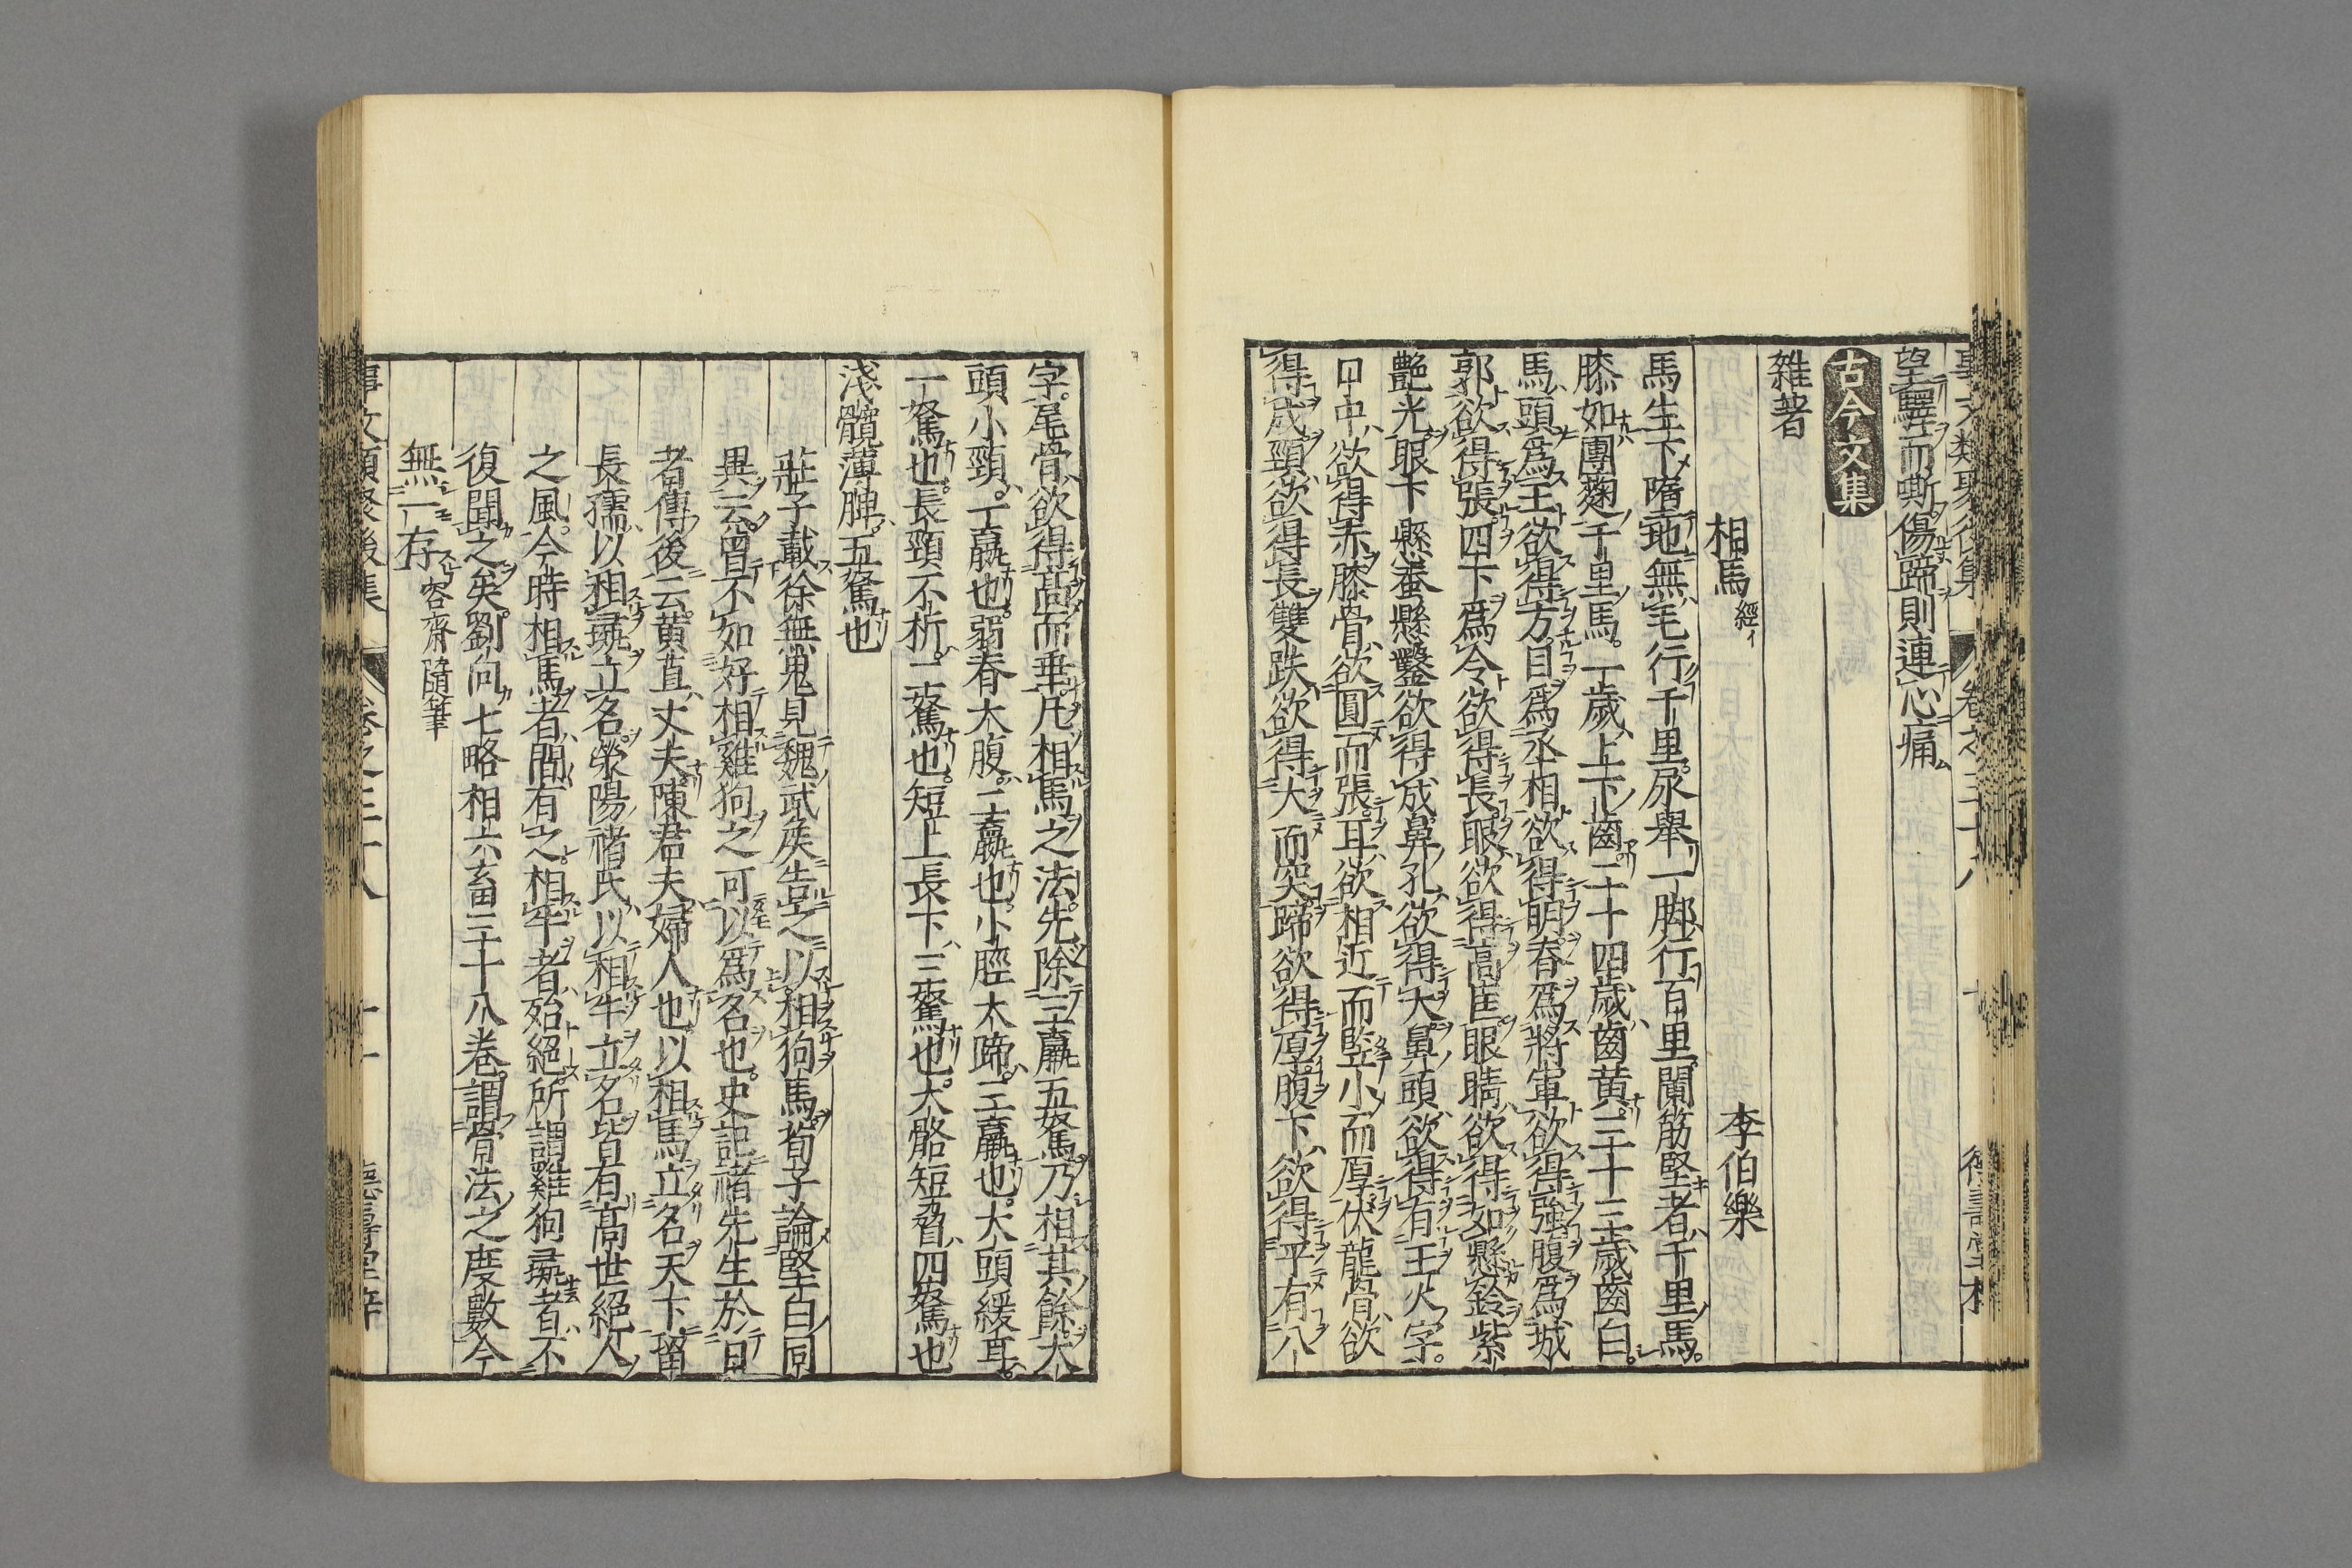 事文類聚後集 卷之三十八 十 德壽堂梓
望驛而嘶傷蹄則連心痛
古今文集
雜著
相馬經 李伯樂
馬生下墮地無毛行千里尿舉一脚行百里闌筋堅者千里馬
膝如團麴千里馬一歲上下齒二十四歲齒黄三十三歲齒白
馬頭爲王欲得方目爲丞相欲得明脊爲將軍欲得強腹爲城
郭欲得張四下爲令欲得長眼欲得高眶眼睛欲得如懸鈴紫
艷光眼下懸蚕懸鑿欲得成鼻孔欲得大鼻頭欲得有王火字
口中欲得赤膝骨欲圓而張耳欲相近而竪小而厚伏龍骨欲
得成頸欲得長雙跌欲得大而突蹄欲得厚腹下欲得平有八
字尾骨欲得高而垂凡相馬之法先除三羸五駑乃相其餘大
頭小頸一羸也弱脊大腹二羸也小脛大蹄三羸也大頭緩耳
一駑也長頸不折二駑也短上長下三駑也大髂短脅四駑也
淺髖薄髀五駑也
莊子載徐無鬼見魏武矦告之以相狗馬荀子論堅白同
異云曾不如好相雞狗之可以爲名也史記褚先生於日
者傳後云黄直丈夫陳君夫婦人也以相馬立名天下留
長孺以相彘立名滎陽褚氏以相牛立名皆有高世絕人
之風今時相馬者間有之相牛者殆絕所謂雞狗彘者不
復聞之矣劉向七略相六畜三十八卷謂骨法之度數今
無一存容齋隨筆
事文類聚後集 卷之三十八 十一 德壽堂梓